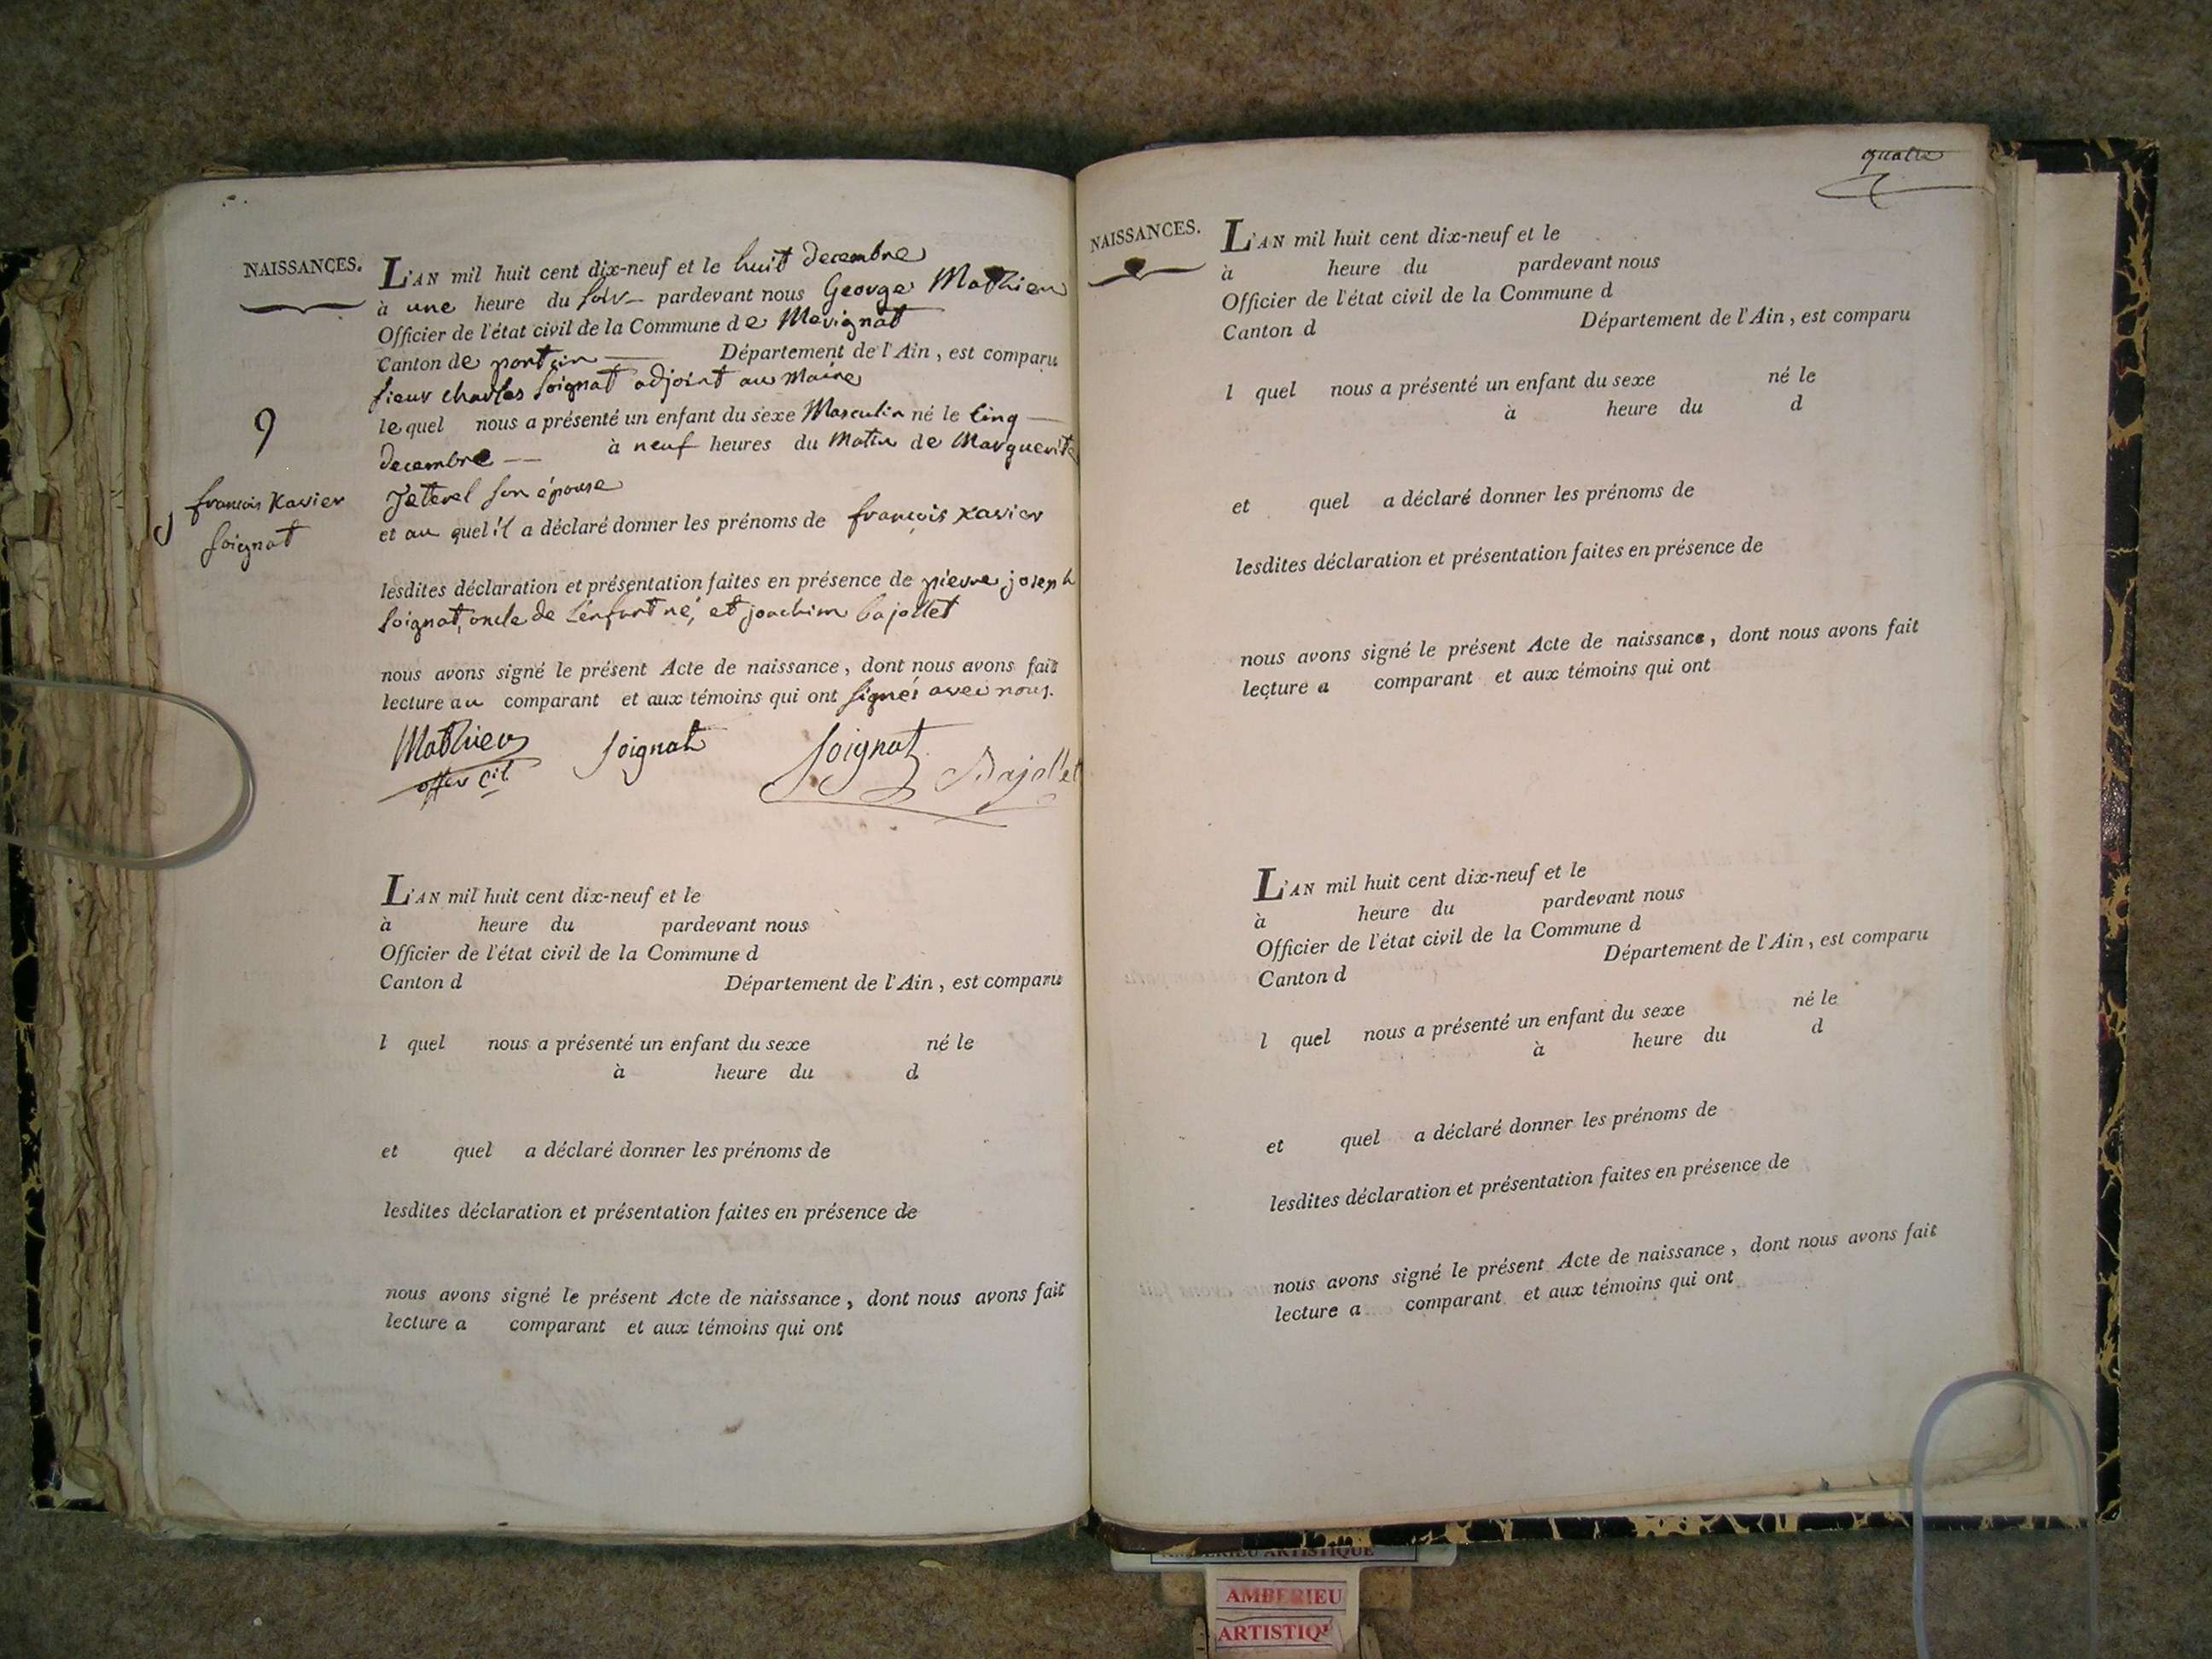 NAISSANCES.
L'AN mil huit cent dix-neuf et le huit decembre
à une heure du soir pardevant nous George Mathieu
Officier de l'état civil de la Commune de Mérignat
Canton de poncin Département de l'Ain, est comparu
sieur charles Soignat adjoint au Maire
lequel nous a présenté un enfant du sexe Masculin né le Cinq
decembre à neuf heures du Matin de Marguerite
Jeterel son épouse
et au quel il a déclaré donner les prénoms de françois Xavier
9
françois Xavier
Soignat
lesdites déclaration et présentation faites en présence de pierre joseph
Soignat, oncle de L'enfant né, et joachim bajollet
nous avons signé le présent Acte de naissance, dont nous avons fait
lecture au comparant et aux témoins qui ont signés avec nous.
Mathieu Soignat Soignat Bajollet
offier Cil
L'AN mil huit cent dix-neuf et le
à heure du pardevant nous
Officier de l'état civil de la Commune d
Canton d Département de l'Ain, est comparu
l quel nous a présenté un enfant du sexe né le
à heure du d
et quel a déclaré donner les prénoms de
lesdites déclaration et présentation faites en présence de
nous avons signé le présent Acte de naissance, dont nous avons fait
lecture a comparant et aux témoins qui ont
quatre
NAISSANCES.
L'AN mil huit cent dix-neuf et le
à heure du pardevant nous
Officier de l'état civil de la Commune d
Canton d Département de l'Ain, est comparu
l quel nous a présenté un enfant du sexe né le
à heure du d
et quel a déclaré donner les prénoms de
lesdites déclaration et présentation faites en présence de
nous avons signé le présent Acte de naissance, dont nous avons fait
lecture a comparant et aux témoins qui ont
L'AN mil huit cent dix-neuf et le
à heure du pardevant nous
Officier de l'état civil de la Commune d
Canton d Département de l'Ain, est comparu
l quel nous a présenté un enfant du sexe né le
à heure du d
et quel a déclaré donner les prénoms de
lesdites déclaration et présentation faites en présence de
nous avons signé le présent Acte de naissance, dont nous avons fait
lecture a comparant et aux témoins qui ont
AMBERIEU ARTISTIQUE
AMBERIEU
ARTISTIQU